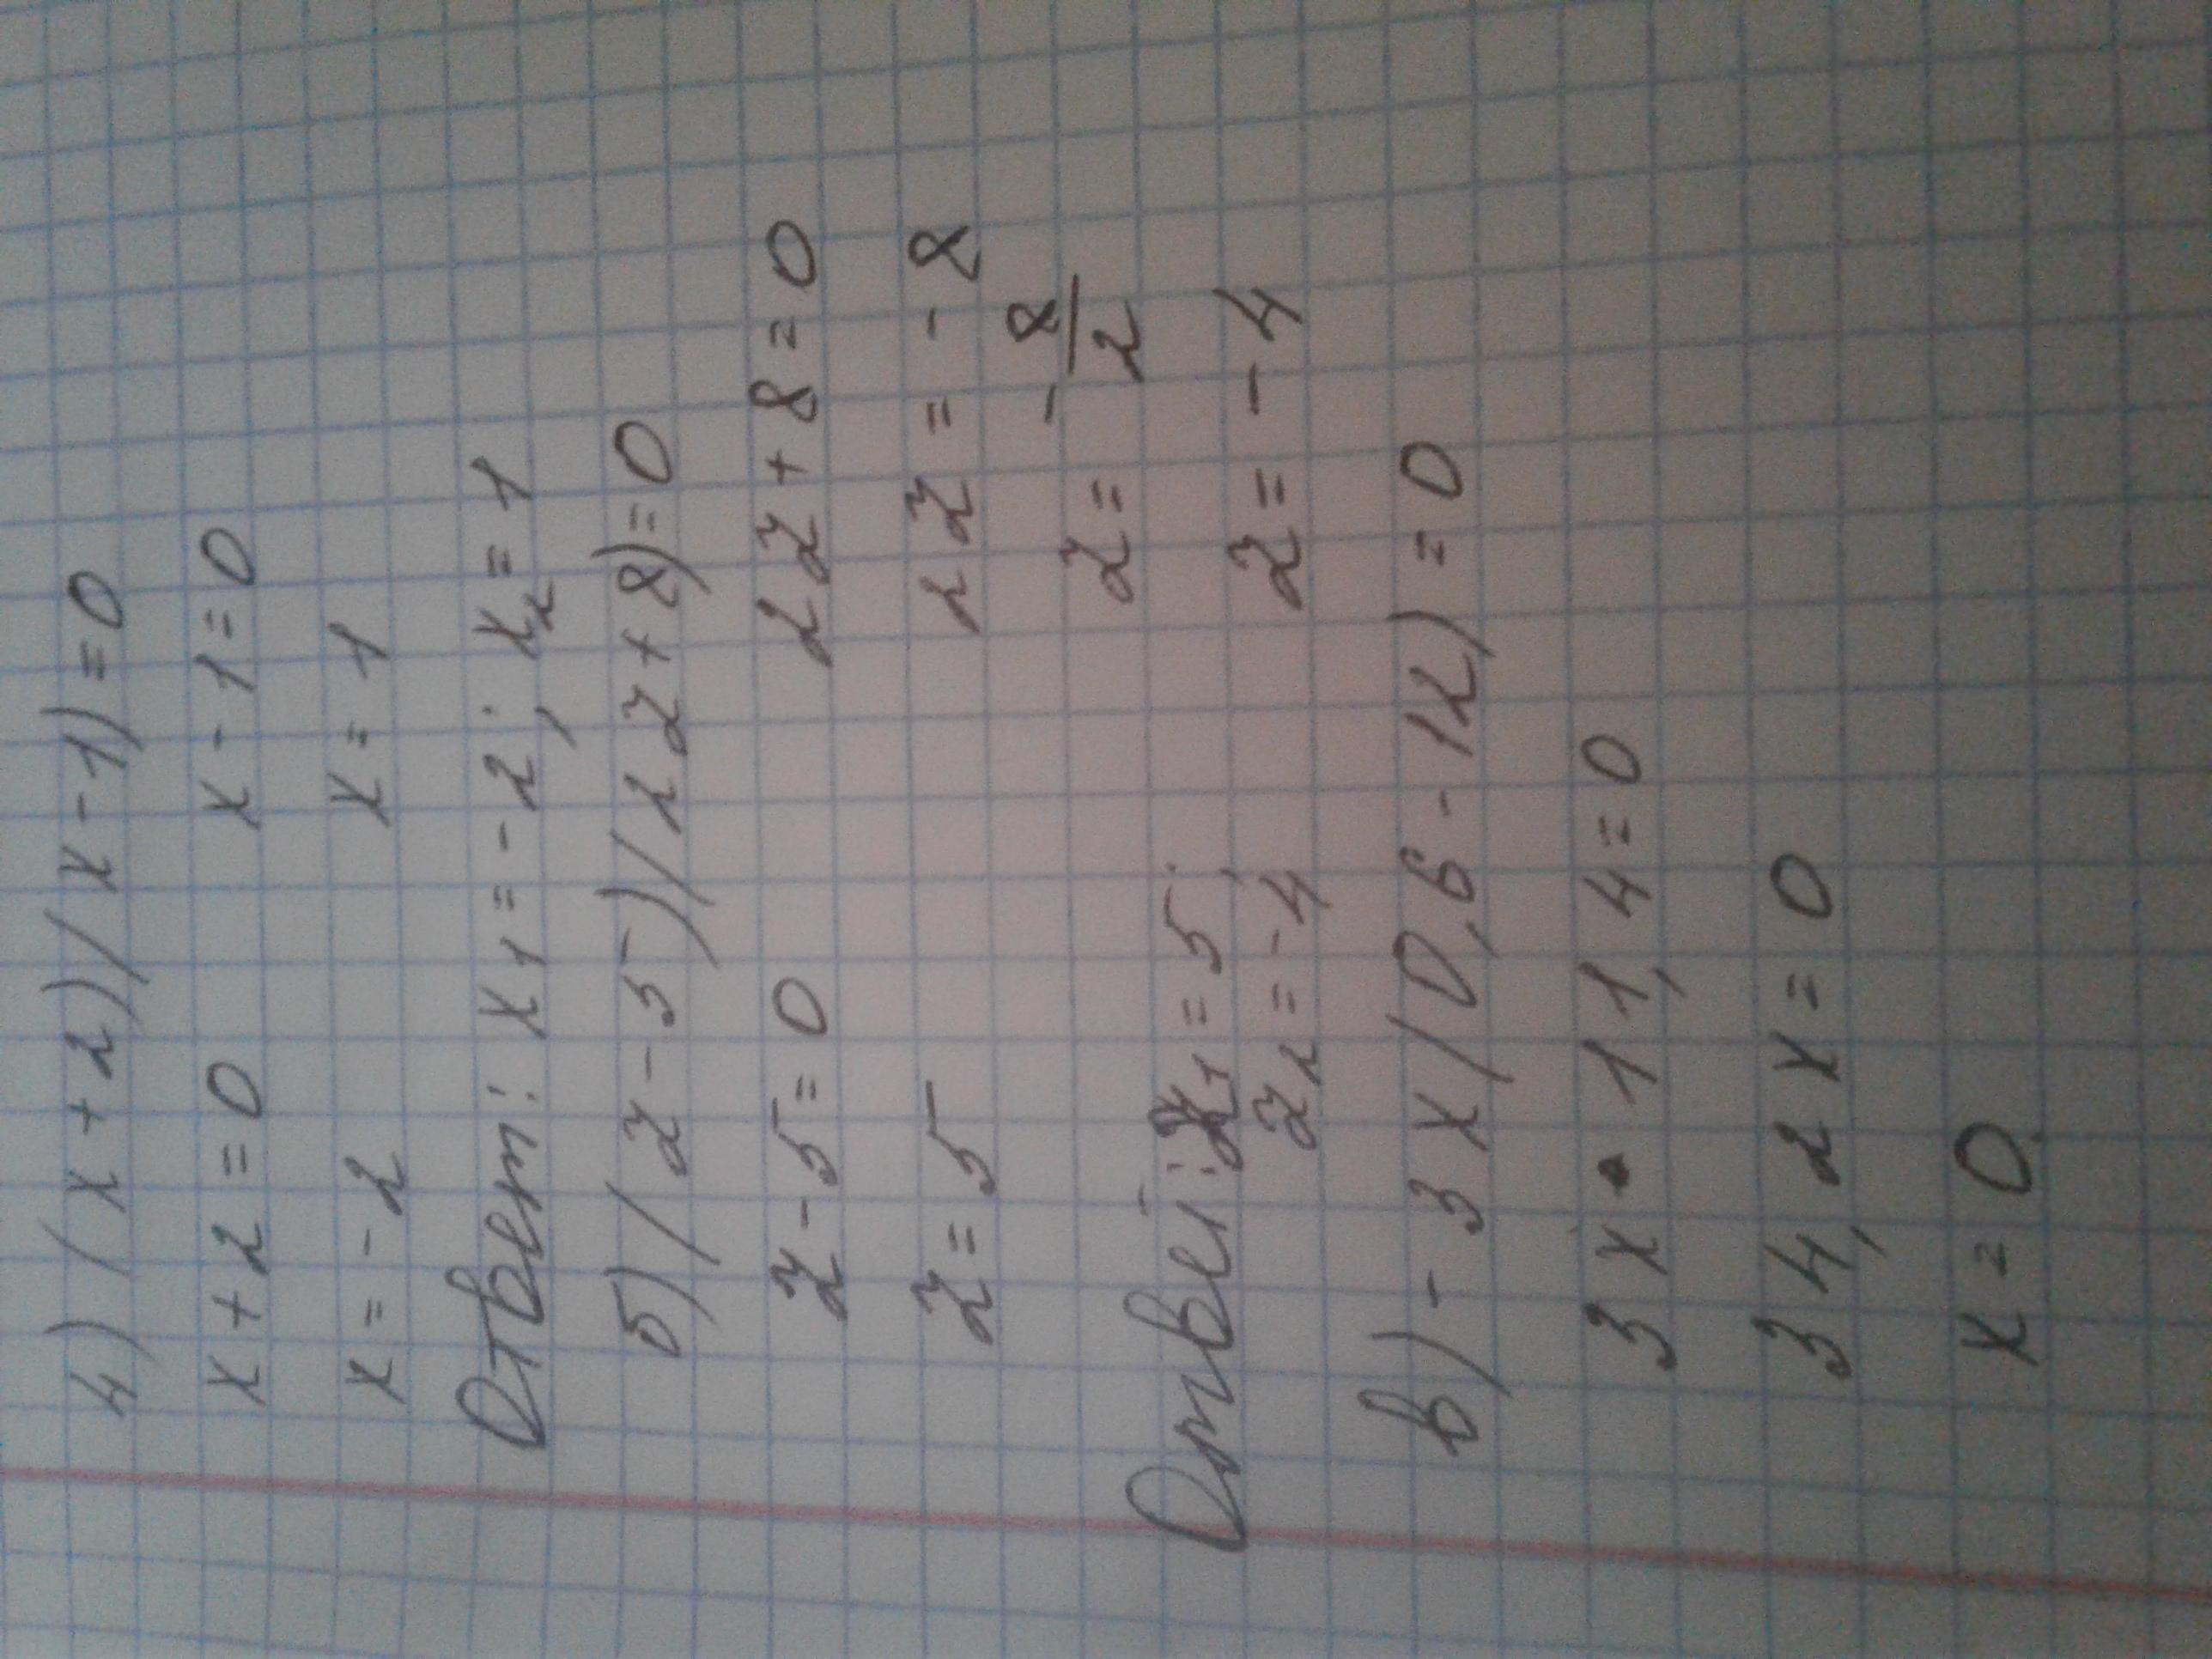 4) (x+2)(x-1)=0
x+2=0 x-1=0
x=-2 x=1
Ответ: x₁=-2; x₂=1
б) (z-5)(2z+8)=0
z-5=0 2z+8=0
z=5 2z=-8
z=-8/2
Ответ: z₁=5; z=-4
z₂=-4
в) -3x(0,6-12)=0
3x•11,4=0
34,2x=0
x=0